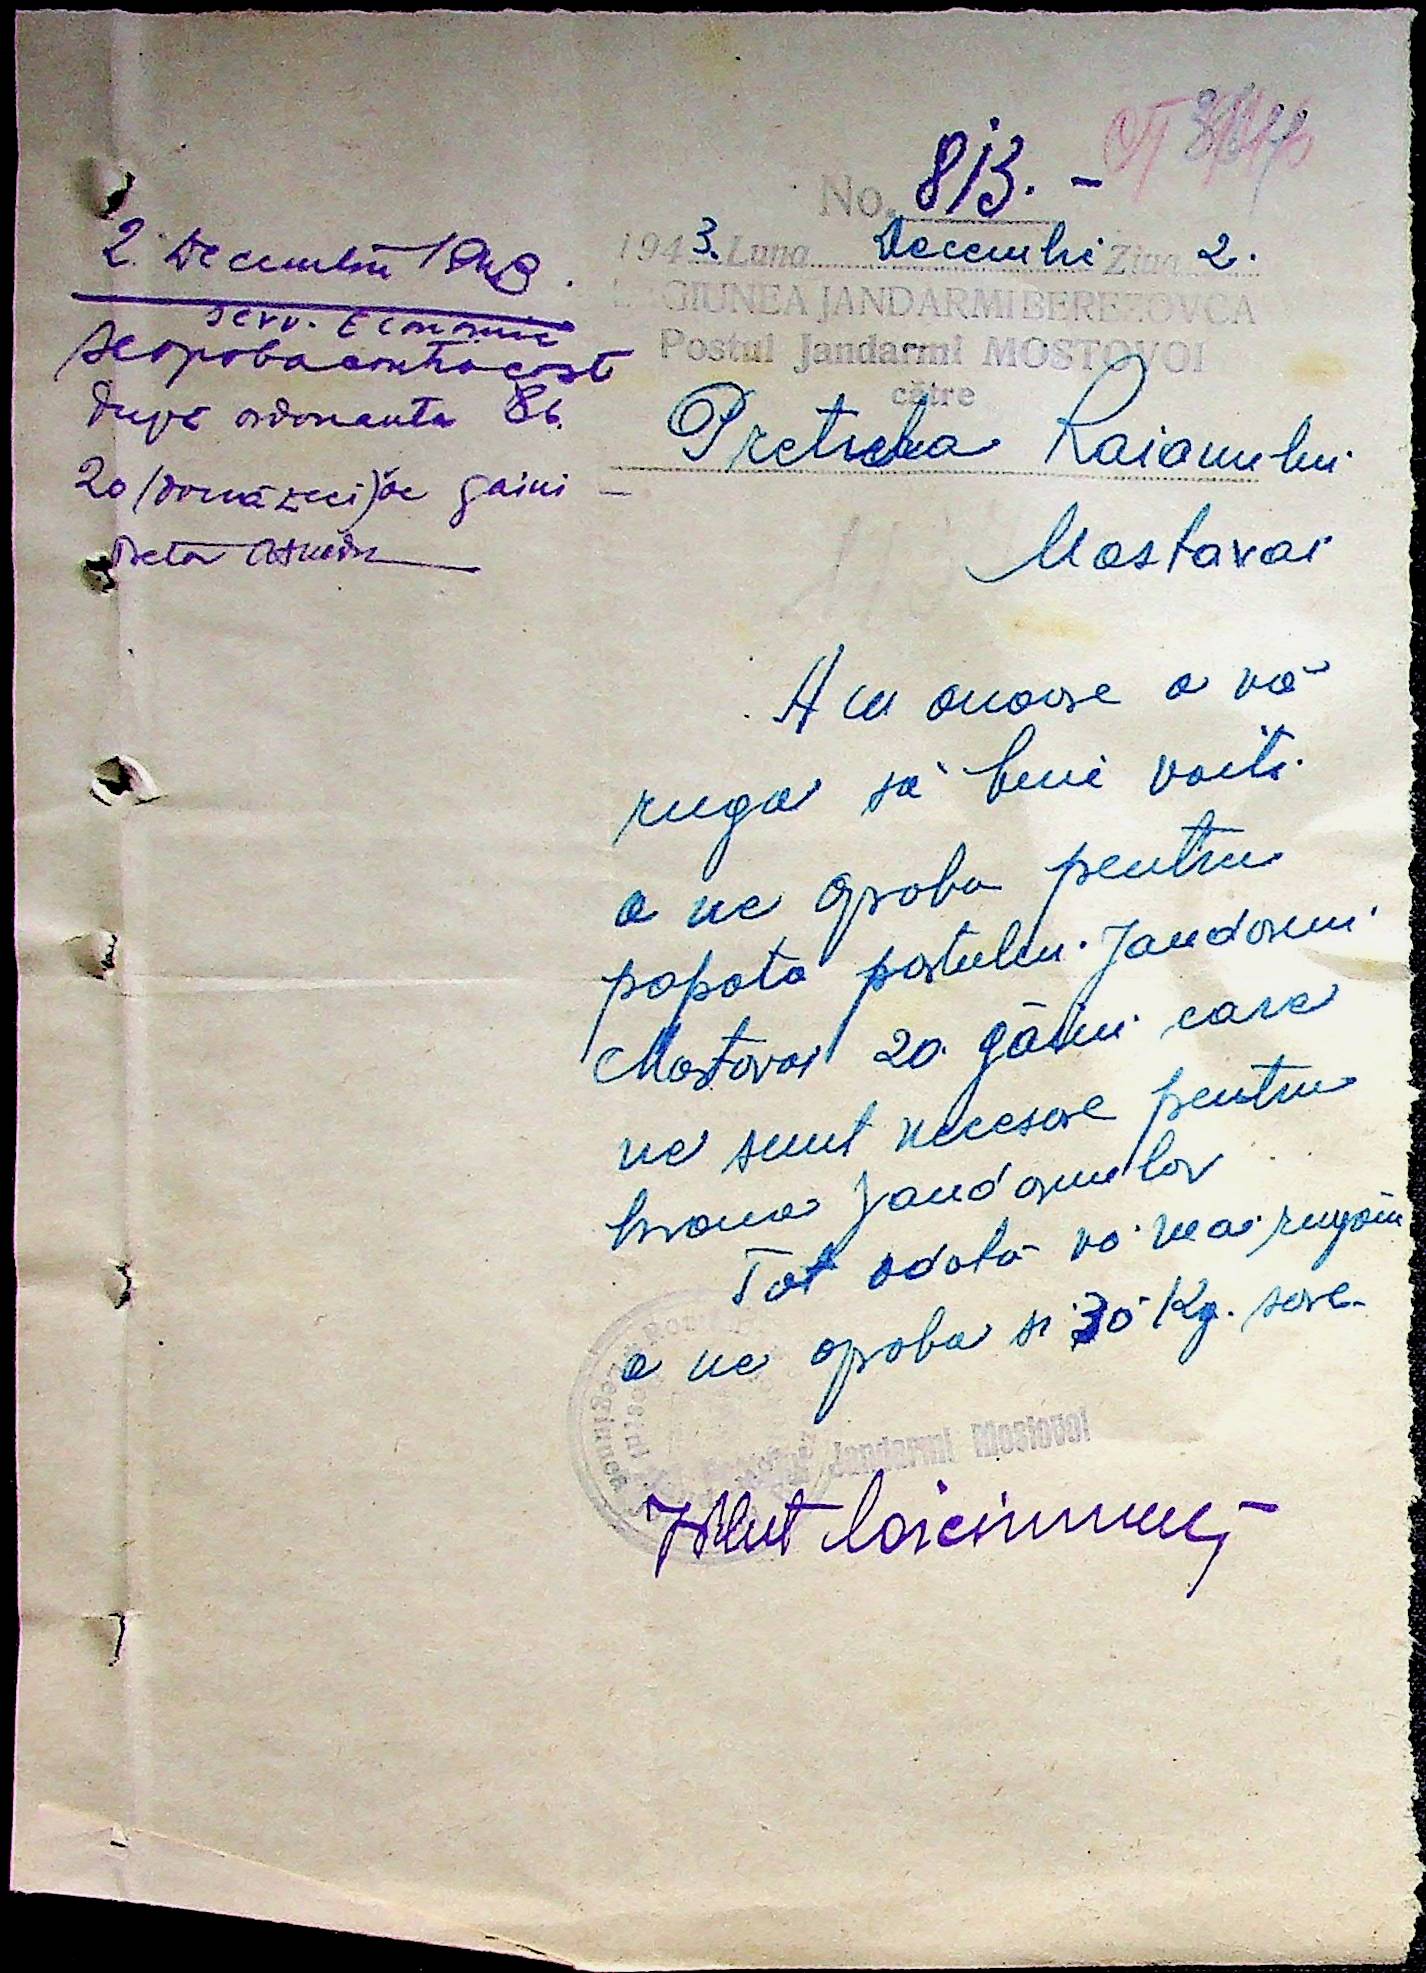 No. 813. -
1943. Luna Decembrie Ziua 2.
LEGIUNEA JANDARMI BEREZOVCA
Postul Jandarmi MOSTOVOI
către
Pretura Raionului
Mostovoi
2. Decembrie 1943.
Serv. Economic
Se aproba contra cost
dupe ordonanta 86.
20 (douăzeci) de gaini —
Pretor
Am onoare a vă
ruga să bine voiti
a ne aproba pentru
popota postului Jandarmi
Mostovoi 20 găini care
ne sunt necesare pentru
hrana Jandarmilor
Tot odată vă mai rugăm
a ne aproba si 30 Kg. sare.
Jandarmi Mostovoi